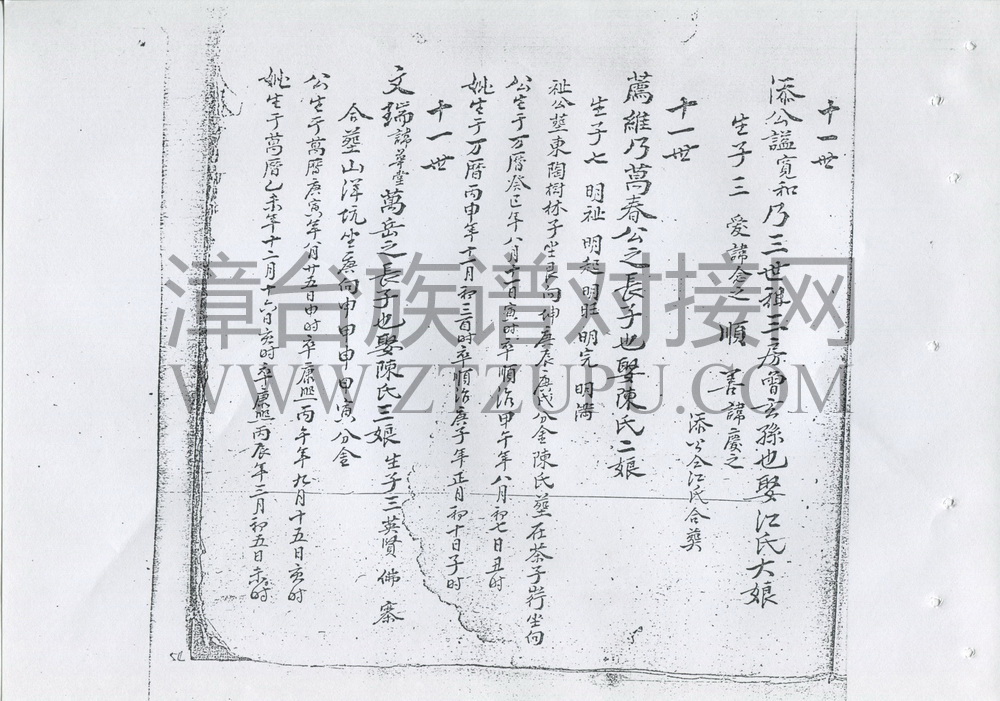 十一世
添公謚寬和乃三世祖三房曾玄孫也娶江氏大娘
生子三 愛諱会之 順 善諱慶之
添公仝江氏合塟
十一世
萬維乃萬春公之長子也娶陳氏二娘
生子七 明祉 明起 明旺 明完 明
祉公塟東陶樹林子坐艮向坤庚辰庚戌分金陳氏塟在茶子坐向
公生于万曆癸巳年八月十一日寅时卒順治甲午年八月初七日丑时
妣生于万曆丙申年十二月初三日时卒順治庚子年正月初十日子时
十一世
文瑞諱華堂萬岳之長子也娶陳氏三娘 生子三英賢 佛 寨
合塟山洋坑坐庚向甲申甲寅分金
公生于萬曆庚寅年八月廿五日申时卒康熙丙午年九月十五日亥时
妣生于萬曆乙未年十二月十六日亥时卒康熙丙辰年三月初五日未时
漳台族谱对接网
WWW.ZTZUPU.COM